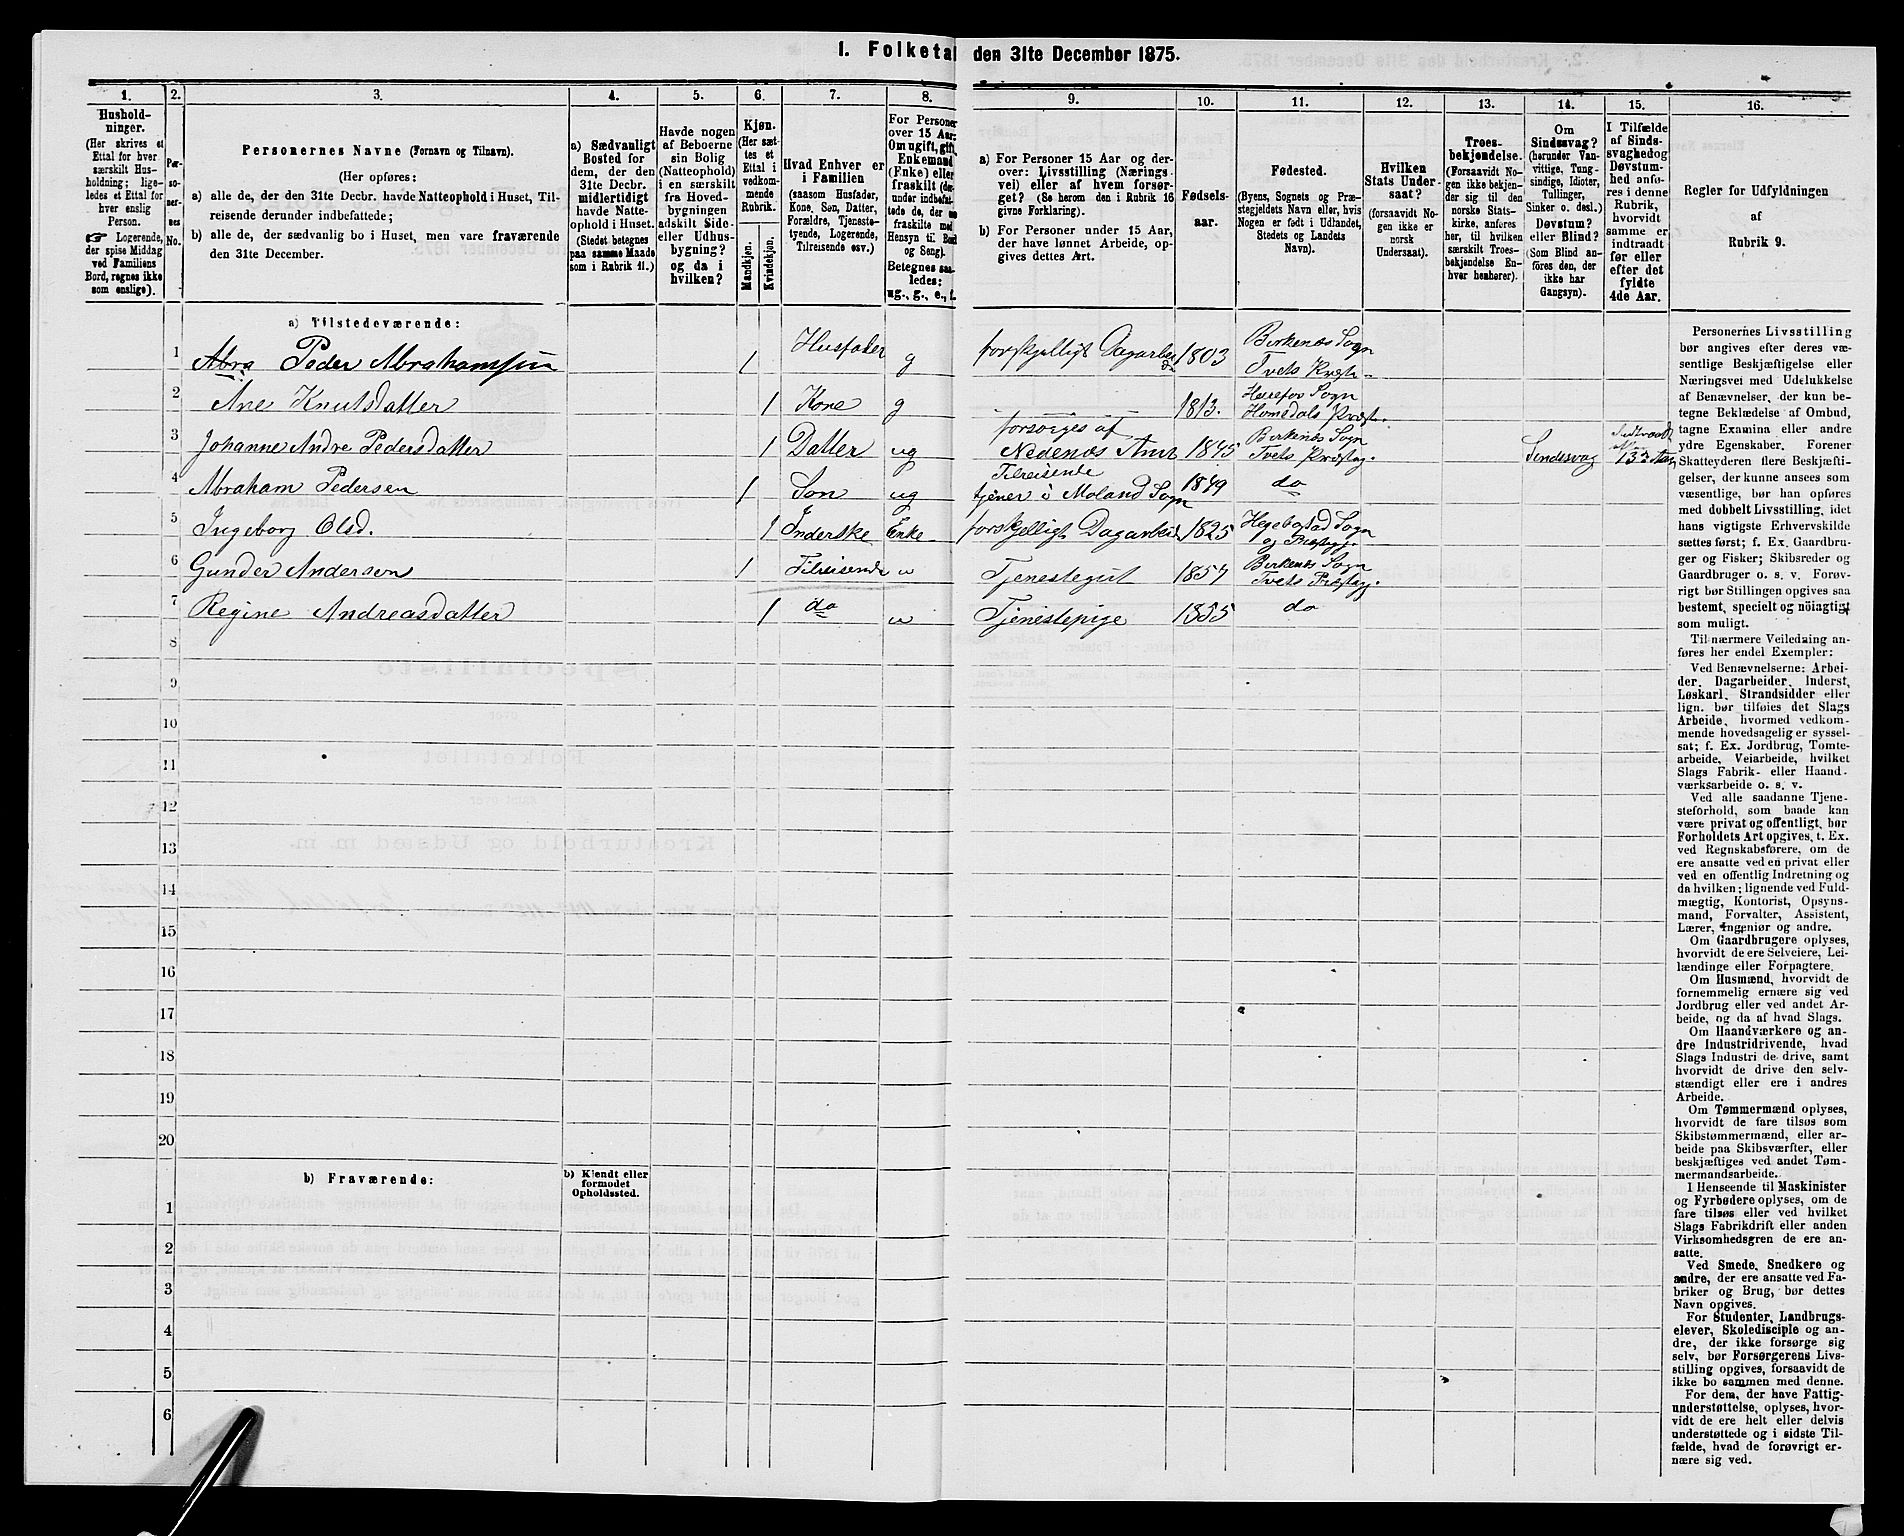 1. Folketal den 31te December 1875.
1. 2. 3. 4. 5. 6. 7. 8. 9. 10. 11. 12. 13. 14. 15. 16.
Hushold-
ninger.
(Her skrives et
Ettal for hver
særskilt Hus-
holdning; lige-
ledes et Ettal for
hver enslig
Person.
☞ Logerende,
der spise Middag
ved Familiens
Bord, regnes ikke
som enslige).
Per-
so-
ner-
nes
No.
Personernes Navne (Fornavn og Tilnavn).
(Her opføres:
a) alle de, der den 31te Decbr. havde Natteophold i Huset, Til-
reisende derunder indbefattede;
b) alle de, der sædvanlig bo i Huset, men vare fraværende
den 31te December.
a) Sædvanligt
Bosted for
dem, der den
31te Decbr.
midlertidigt
havde Natte-
ophold i Huset.
(Stedet betegnes
paa samme Maade
som i Rubrik 11.)
Havde nogen
af Beboerne
sin Bolig
(Natteophold)
i en særskilt
fra Hoved-
bygningen
adskilt Side-
eller Udhus-
bygning?
og da i
hvilken?
Kjøn.
(Her sæt-
tes et
Ettal i
vedkom-
mende
Rubrik.
Mandkjøn.
Kvindekjøn.
Hvad Enhver er
i Familien
(saasom Husfader,
Kone, Søn, Datter,
Forældre, Tjeneste-
tyende, Logerende,
Tilreisende osv.)
For Personer
over 15 Aar:
Om ugift, gift,
Enkemand
(Enke) eller
fraskilt (der-
under indbefat-
tede de, der ere
fraskilte med
Hensyn til Bord
og Seng).
Betegnes saa-
ledes:
ug., g., e., f.
a) For Personer 15 Aar og der-
over: Livsstilling (Nærings-
vei) eller af hvem forsør-
get? (Se herom den i Rubrik 16
givne Forklaring).
b) For Personer under 15 Aar,
der have lønnet Arbeide, op-
gives dettes Art.
Fødsels-
aar.
Fødested.
(Byens, Sognets og Præ-
stegjeldets Navn eller, hvis
Nogen er født i Udlandet,
Stedets og Landets
Navn).
Hvilken
Stats Under-
saat?
(forsaavidt No-
gen ikke er
norsk
Undersaat).
Troes-
bekjendelse.
(Forsaavidt No-
gen ikke bekjen-
der sig til den
norske Stats-
kirke, anføres
her, til hvilken
særskilt Troes-
bekjendelse En-
hver henhører).
Om
Sindssvag?
(herunder Van-
vittige, Tung-
sindige, Idioter,
Tullinger,
Sinker o. desl.)
Døvstum?
eller Blind?
(Som Blind an-
føres den, der
ikke har
Gangsyn).
I Tilfælde
af Sinds-
svaghed og
Døvstum-
hed anfø-
res i denne
Rubrik,
hvorvidt
samme er
indtraadt
før eller
efter det
fyldte
4de Aar.
Regler for Udfyldningen
af
Rubrik 9.
a) Tilstedeværende:
1 Abra Peder Abrahamsen 1 Husfader g forskjelligt Dagarbeide 1803 Birkenæs Sogn
Tvets Præst.
2 Ane Knutsdatter 1 Kone g 1813. Herefos Sogn
Homedals Præst.
3 Johanne Andre Pedersdatter 1 Datter ug forsørges af
Nedenæs Amt 1845 Birkenæs Sogn
Tvets Præstg. Sindssvag 13de Aar
4 Abraham Pedersen 1 Søn ug Tilreisende
tjener i Moland Sogn 1849 do
5 Ingeborg Olsd. 1 Inderske Enke forskjelligt Dagarbeide 1825 Hegebostad Sogn
og Præstegj.
6 Gunder Andersen 1 Tilreisende u Tjenestegut 1857 Birkenæs Sogn
Tvets Præstegj.
7 Regine Andreasdatter 1 do u Tjenestepige 1855 do
8
9
10
11
12
13
14
15
16
17
18
19
20
b) Fraværende:
b) Kjendt eller
formodet
Opholdssted.
1
2
3
4
5
6
Personernes Livsstilling
bør angives efter deres væ-
sentlige Beskjæftigelse eller
Næringsvei med Udelukkelse
af Benævnelser, der kun be-
tegne Beklædelse af Ombud,
tagne Examina eller andre
ydre Egenskaber. Forener
Skatteyderen flere Beskjæfti-
gelser, der kunne ansees som
væsentlige, bør han opføres
med dobbelt Livsstilling, idet
hans vigtigste Erhvervskilde
sættes først; f. Ex. Gaardbru-
ger og Fisker; Skibsreder og
Gaardbruger o. s. v. Forøv-
rigt bør Stillingen opgives saa
bestemt, specielt og nöiagtigt
som muligt.
Til nærmere Veiledning an-
føres her endel Exempler:
Ved Benævnelserne: Arbei-
der, Dagarbeider, Inderst,
Løskarl, Strandsidder eller
lign. bør tilføies det Slags
Arbeide, hvormed vedkom-
mende hovedsagelig er syssel-
sat; f. Ex. Jordbrug, Tomte-
arbeide, Veiarbeide, hvilket
Slags Fabrik- eller Haand-
værksarbeide o. s. v.
Ved alle saadanne Tjene-
steforhold, som baade kan
være privat og offentligt, bør
Forholdets Art opgives, t. Ex.
ved Regnskabsførere, om de
ere ansatte ved en privat eller
ved en offentlig Indretning og
da hvilken; lignende ved Fuld-
mægtig, Kontorist, Opsyns-
mand, Forvalter, Assistent,
Lærer, Ingeniør og andre.
Om Gaardbrugere oplyses,
hvorvidt de ere Selveiere, Lei-
lændinge eller Forpagtere.
Om Husmænd, hvorvidt de
fornemmelig ernære sig ved
Jordbrug eller ved andet Ar-
beide, og da af hvad Slags.
Om Haandværkere og an-
dre Industridrivende, hvad
Slags Industri de drive, samt
hvorvidt de drive den selv-
stændigt eller ere i andres
Arbeide.
Om Tømmermænd oplyses,
hvorvidt de fare tilsøs som
Skibstømmermænd, eller ar-
beide paa Skibsværfter, eller
beskjæftiges ved andet Tøm-
mermandsarbeide.
I Henseende til Maskinister
og Fyrbødere oplyses, om de
fare tilsøs eller ved hvilket
Slags Fabrikdrift eller anden
Virksomhedsgren de ere an-
satte.
Ved Smede, Snedkere og
andre, der ere ansatte ved Fa-
briker og Brug, bør dettes
Navn opgives.
For Studenter, Landbrugs-
elever, Skoledisciple og an-
dre, der ikke forsørge sig
selv, bør Forsørgerens Livs-
stilling opgives, forsaavidt de
ikke bo sammen med denne.
For dem, der have Fattig-
understøttelse, oplyses, hvor-
vidt de ere helt eller delvis
understøttede og i sidste Til-
fælde, hvad de forøvrigt er-
nære sig ved.